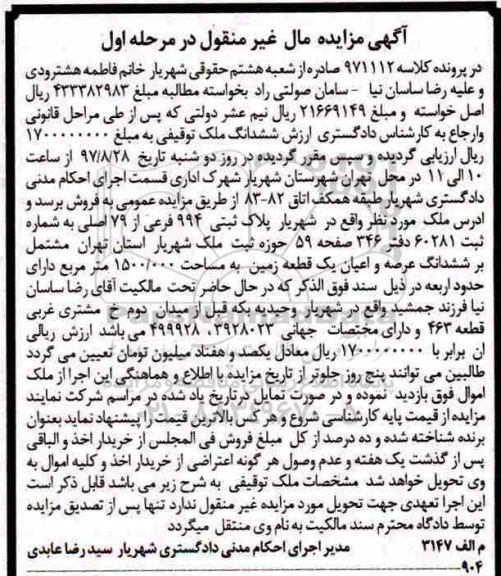 آگهی مزایده مال غیر منقول در مرحله اول
در پرونده کلاسه ۹۷۱۱۱۲ صادره از شعبه هشتم حقوقی شهریار خانم فاطمه هشترودی
و علیه رضا ساسان نیا - سامان صولتی راد بخواسته مطالبه مبلغ ۴۳۳۳۸۲۹۸۳ ریال
اصل خواسته و مبلغ ۲۱۶۶۹۱۴۹ ریال نیم عشر دولتی که پس از طی مراحل قانونی
وارجاع به کارشناس دادگستری ارزش ششدانگ ملک توقیفی به مبلغ ۱۷۰۰۰۰۰۰۰۰
ریال ارزیابی گردیده و سپس مقرر گردیده در روز دو شنبه تاریخ ۹۷/۸/۲۸ از ساعت
۱۰ الی ۱۱ در محل تهران شهرستان شهریار شهرک اداری قسمت اجرای احکام مدنی
دادگستری شهریار طبقه همکف اتاق ۸۲-۸۳ از طریق مزایده عمومی به فروش برسد و
ادرس ملک مورد نظر واقع در شهریار پلاک ثبتی ۹۹۴ فرعی از ۷۹ اصلی به شماره
ثبت ۶۰۲۸۱ دفتر ۳۴۶ صفحه ۵۹ حوزه ثبت ملک شهریار استان تهران مشتمل
بر ششدانگ عرصه و اعیان یک قطعه زمین به مساحت ۱۵۰۰/۰۰۰ متر مربع دارای
حدود اربعه در ذیل سند فوق الذکر که در حال حاضر تحت مالکیت آقای رضا ساسان
نیا فرزند جمشید واقع در شهریار وحیدیه بکه قبل از میدان دوم خ مشتری غربی
قطعه ۴۶۳ و دارای مختصات جهانی ۳۹۲۸۰۲۳، ۴۹۹۹۲۸ می باشد ارزش ریالی
ان برابر با ۱۷۰۰۰۰۰۰۰۰ ریال معادل یکصد و هفتاد میلیون تومان تعیین می گردد
طالبین می توانند پنج روز جلوتر از تاریخ مزایده با اطلاع و هماهنگی این اجرا از ملک
اموال فوق بازدید نموده و در صورت تمایل درتاریخ یاد شده در مراسم شرکت نمایند
مزایده از قیمت پایه کارشناسی شروع و هر کس بالاترین قیمت را پیشنهاد نماید بعنوان
برنده شناخته شده و ده درصد از کل مبلغ فروش فی المجلس از خریدار اخذ و الباقی
پس از گذشت یک هفته و عدم وصول هر گونه اعتراضی از خریدار اخذ و کلیه اموال به
وی تحویل خواهد شد مشخصات ملک توقیفی به شرح زیر می باشد قابل ذکر است
این اجرا تعهدی جهت تحویل مورد مزایده غیر منقول ندارد تنها پس از تصدیق مزایده
توسط دادگاه محترم سند مالکیت به نام وی منتقل میگردد
م الف ۳۱۴۷ مدیر اجرای احکام مدنی دادگستری شهریار سید رضا عابدی
۹۰۴